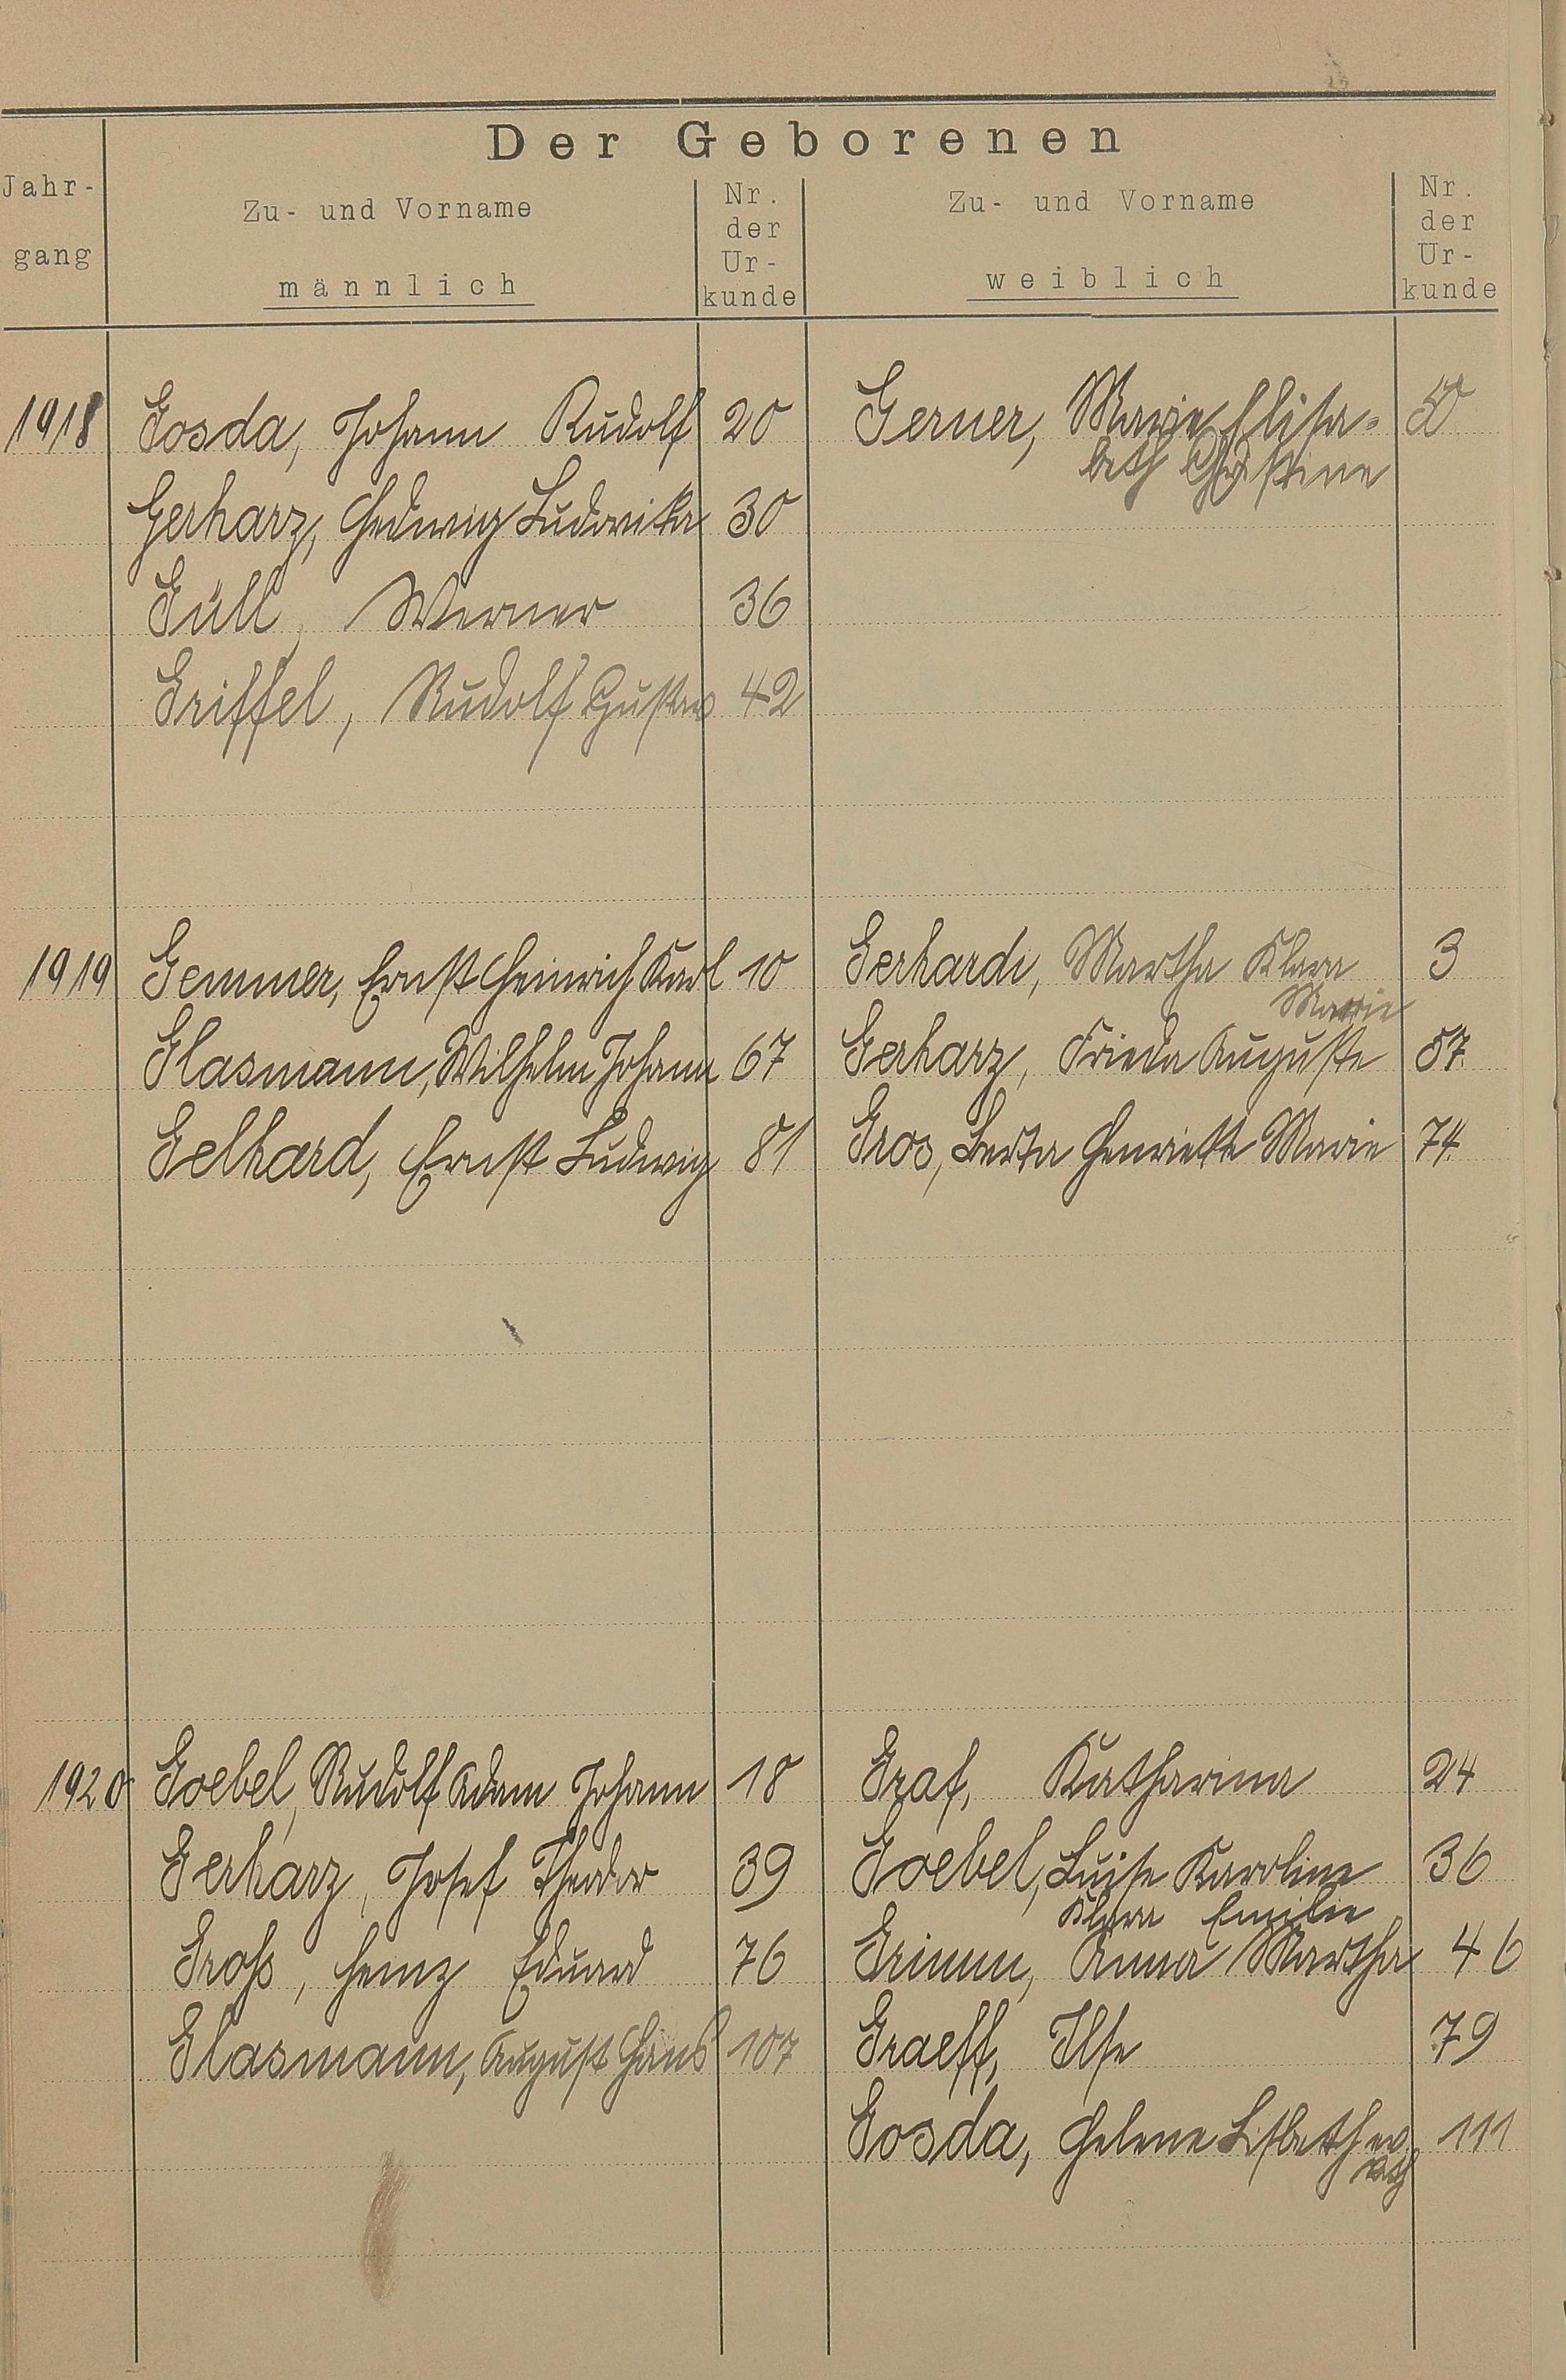 Der Geborenen
Jahr-
gang
Zu- und Vorname
männlich
Nr.
der
Ur-
kunde
Zu- und Vorname
weiblich
Nr.
der
Ur-
kunde
1918 Gosda, Johann Rudolf 20 Gerner, Marie Elisa- 50
beth Christine
Gerharz, Hedwig Ludovika 30
Güll, Werner 36
Griffel, Rudolf Gustav 42
1919 Gemmer, Ernst Heinrich Karl 10 Gerhardi, Martha Klara 3
Marie
Glasmann, Wilhelm Johann 67 Gerharz, Frieda Auguste 57
Gelhard, Ernst Ludwig 81 Gros, Berta Henriette Marie 74
1920 Goebel, Rudolf Adam Johann 18 Graf, Katharina 24
Gerharz, Josef Theodor 39 Goebel, Luise Karoline 36
Klara Emilie
Groß, Heinz Eduard 76 Grimm, Anna Martha 46
Glasmann, August Hans 107 Graeff, Ilse 79
Gosda, Helene Lisbeth 111